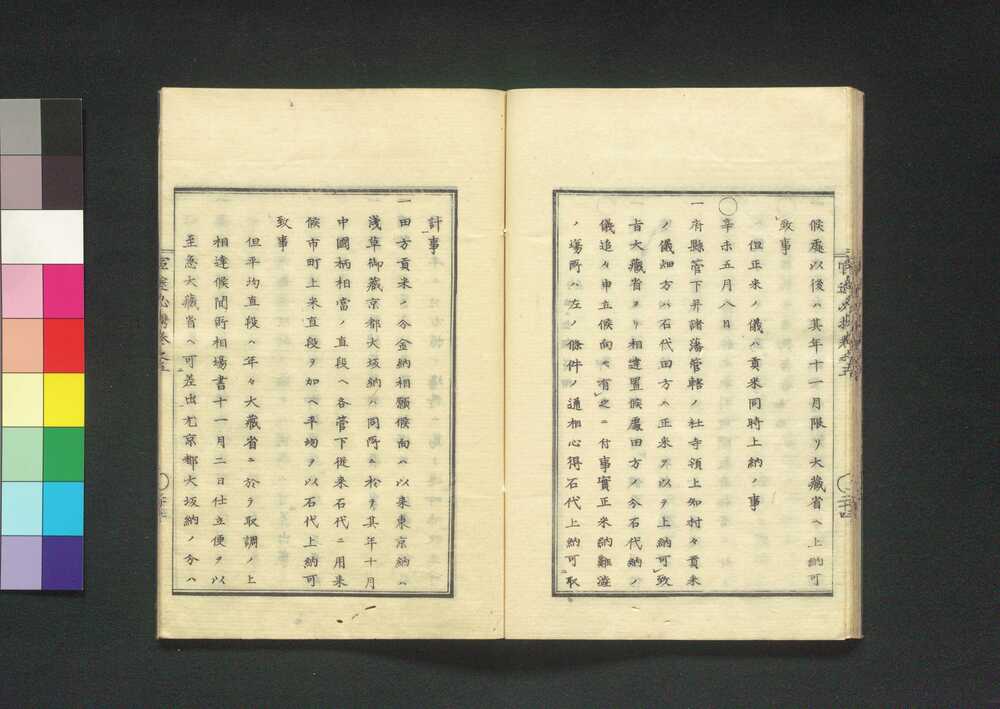 候處以後ハ其年十一月限リ大藏省ヘ上納可
致事
但正米ノ儀ハ貢米同時上納ノ事
〇
辛未五月八日
一府縣管下幷諸藩管轄ノ社寺領上知村々貢米
ノ儀畑方ハ石代田方ハ正米ヲ以テ上納可致
旨大藏省ヨリ相達置候處田方ノ分石代納ノ
儀追々申立候向モ有之ニ付事實正米納難澁
ノ場所ハ左ノ條件ノ通相心得石代上納可取
計事
一田方貢米ノ分金納相願候向ハ以來東京納ハ
淺草御藏京都大坂納ハ同所ニ於テ其年十月
中國柄相當ノ直段ヘ各管下從來石代ニ用來
候市町上米直段ヲ加ヘ平均ヲ以石代上納可
致事
但平均直段ハ年々大藏省ニ於テ取調ノ上
相達候間所相場書十一月二日仕立便ヲ以
至急大藏省ヘ可差出尤京都大坂納ノ分ハ